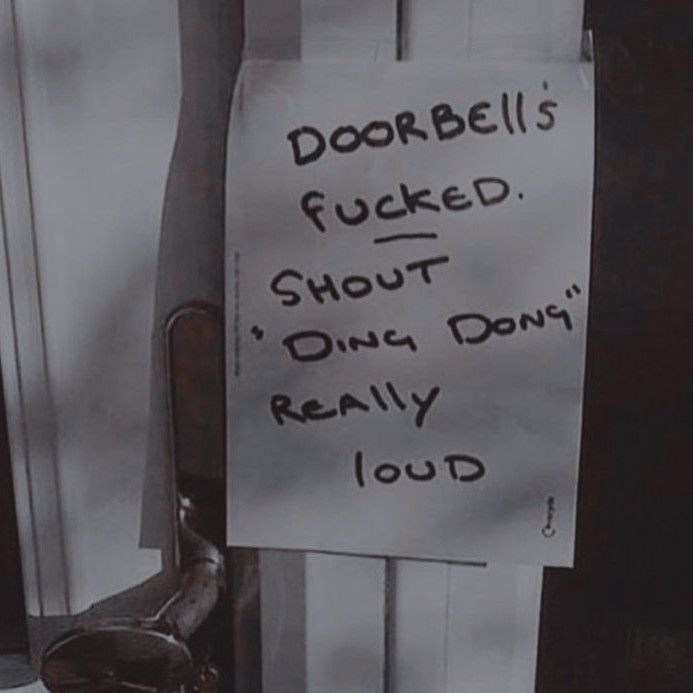 DOORBEllS
fUCKED.
SHOUT
"DING DONG"
REAlly
loUD